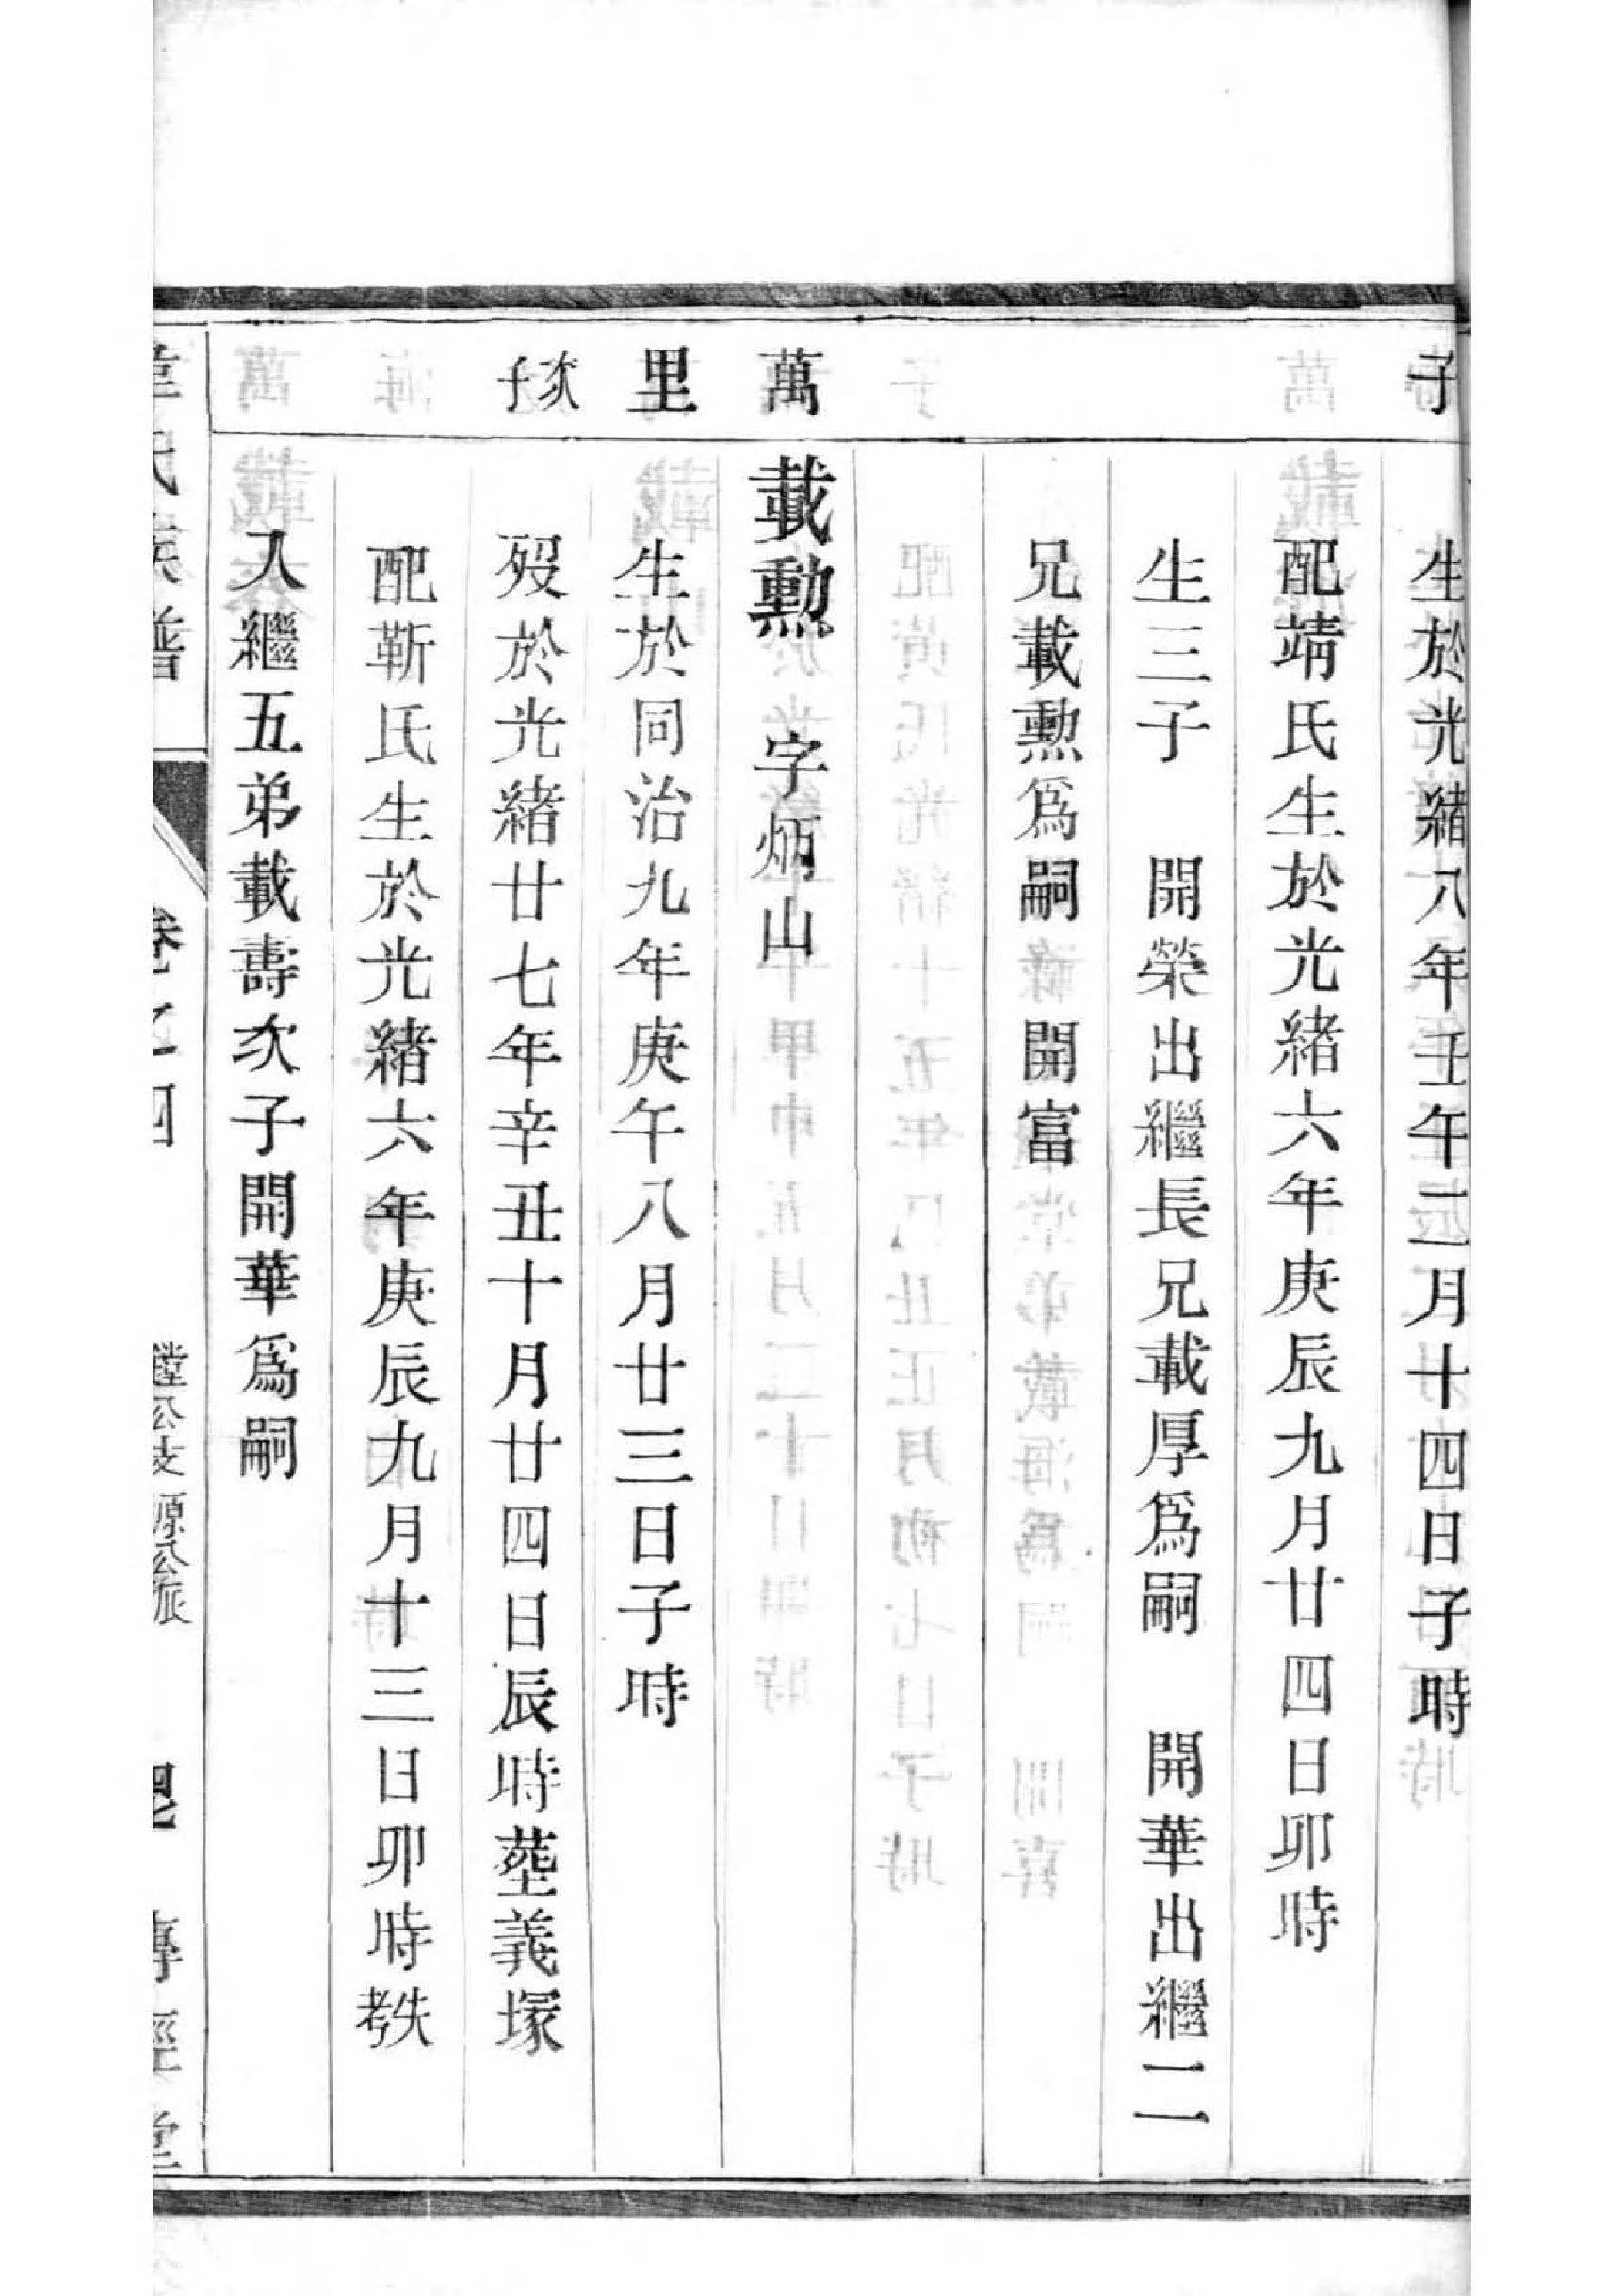 子
生於光緒八年壬午二月十四日子時
配靖氏生於光緒六年庚辰九月廿四日卯時
生三子　開榮出繼長兄載厚爲嗣　開華出繼二
兄載勲爲嗣　開富
萬　載勲　字炳山
里　生於同治九年庚午八月廿三日子時
次子　歿於光緒廿七年辛丑十月廿四日辰時塟義塚
配靳氏生於光緒六年庚辰九月十三日卯時考失
入繼五弟載壽次子開華爲嗣
韋氏族譜　卷之四　源公派　傳經堂